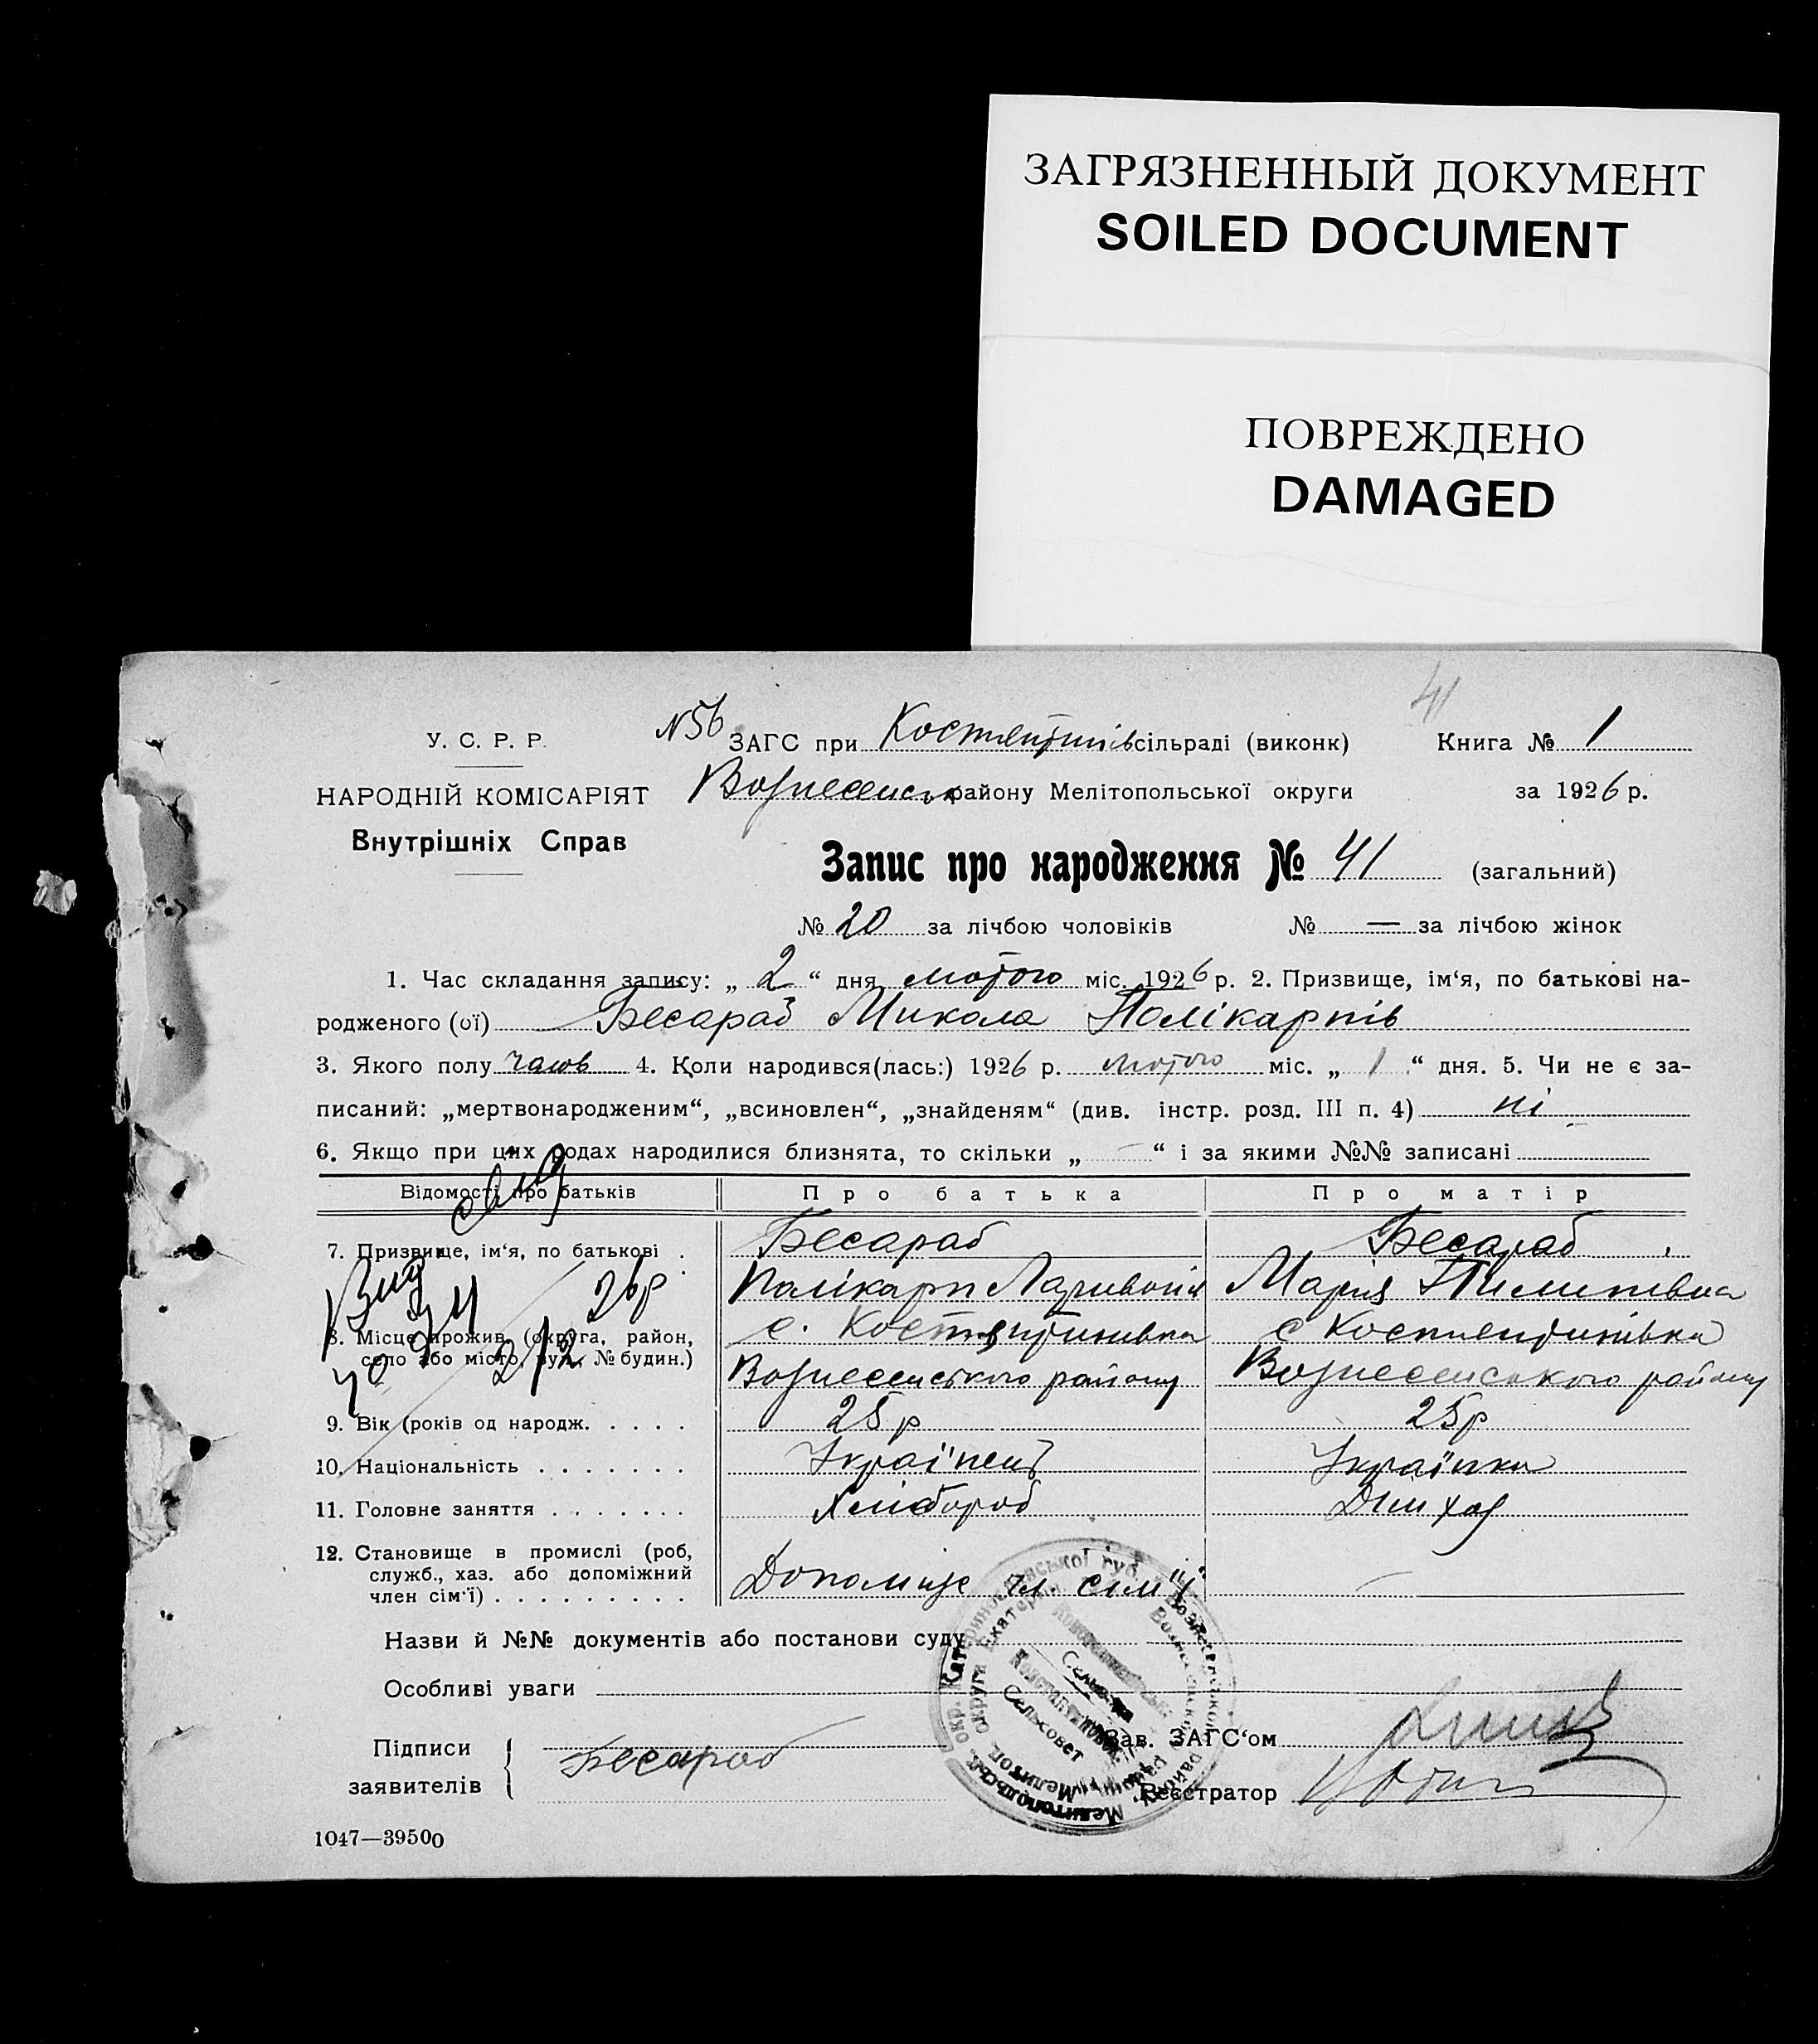 ЗАГРЯЗНЕННЫЙ ДОКУМЕНТ
SOILED DOCUMENT
ПОВРЕЖДЕНО
DAMAGED
41
У. С. Р. Р.
НАРОДНІЙ КОМІСАРІЯТ
Внутрішніх Справ
N56 ЗАГС при Костянтинів сільраді (виконк) Книга № 1
Вознесенськ району Мелітопольської округи за 1926 р.
Запис про народження № 41 (загальний)
№ 20 за лічбою чоловіків № — за лічбою жінок
1. Час складання запису: „ 2 “ дня лютого міс. 1926 р. 2. Призвище, ім‘я, по батькові на-
родженого (ої) Бесараб Микола Полікарпів
3. Якого полу чолов 4. Коли народився(лась:) 1926 р. лютого міс. „ 1 “ дня. 5. Чи не є за-
писаний: „мертвонародженим“, „всиновлен“, „знайденям“ (див. інстр. розд. III п. 4) ні
6. Якщо при цих родах народилися близнята, то скільки „ — “ і за якими №№ записані
Відомості про батьків Про батька Про матір
7. Призвище, ім‘я, по батькові . Бесараб Бесараб
Полікарп Марія Пилипівна
8. Місце прожив. (округа, район, с. Костянтинівка с Костянтинівка
село або місто, вул., № будин.) Вознесенського району Вознесенського району
26р
2/12
9. Вік (років од народж. . . . . 25 р 25р
10. Національність . . . . . . . Українець Українка
11. Головне заняття . . . . . . . Хлібороб Дом хоз
12. Становище в промислі (роб,
служб., хаз. або допоміжний Допоміже чл. сім'ї —
член сім‘ї) . . . . . . . . .
Назви й №№ документів або постанови суду
Особливі уваги
Підписи
заявителів Бесараб
Зав. ЗАГС‘ом
Реєстратор
Сельсовет
1047—39500